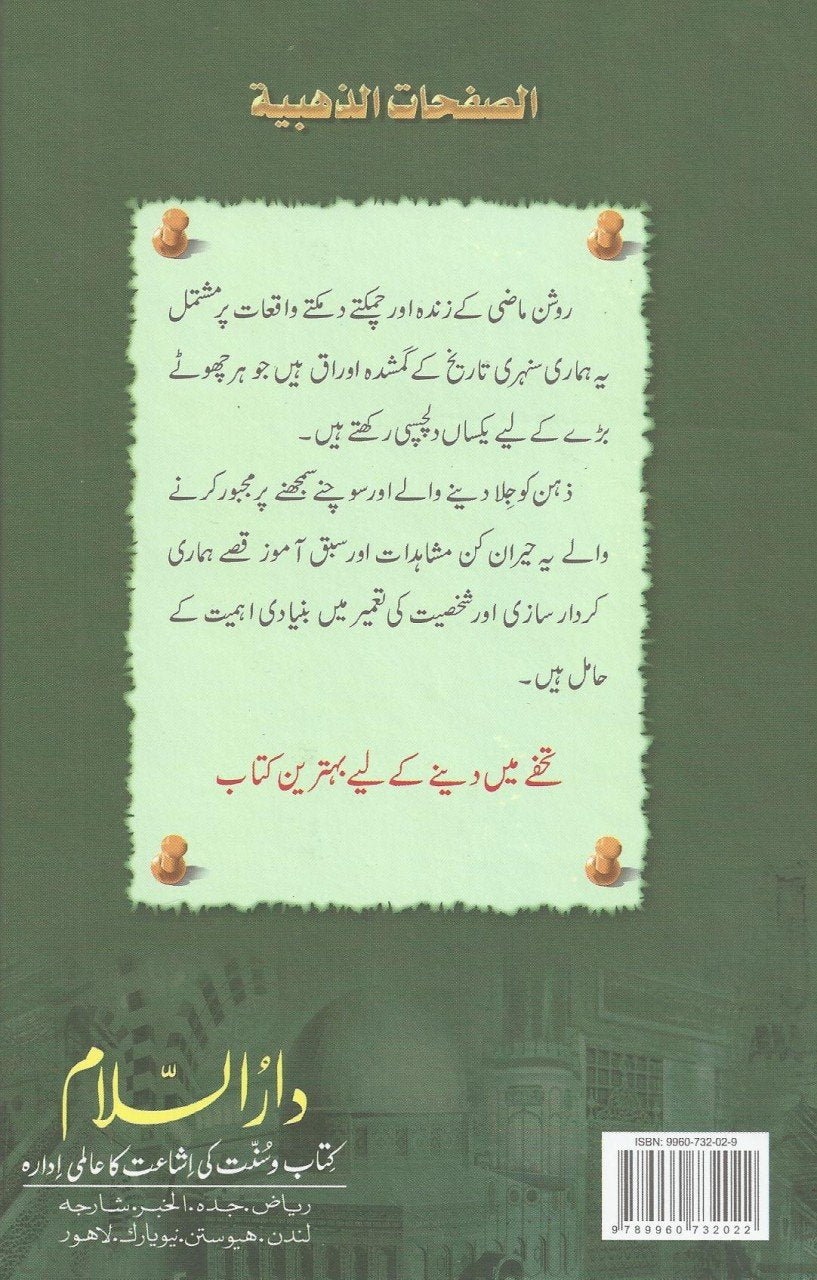 الصفحات الذهبية
روشن ماضی کے زندہ اور چمکتے دمکتے واقعات پر مشتمل
یہ ہماری سنہری تاریخ کے گمشدہ اوراق ہیں جو ہر چھوٹے
بڑے کے لیے یکساں دلچسپی رکھتے ہیں۔
ذہن کو جِلا دینے والے اور سوچنے سمجھنے پر مجبور کرنے
والے یہ حیران کن مشاہدات اور سبق آموز قصے ہماری
کردار سازی اور شخصیت کی تعمیر میں بنیادی اہمیت کے
حامل ہیں۔
تحفے میں دینے کے لیے بہترین کتاب
دارُالسّلام
کتاب و سُنّت کی اِشاعت کا عالمی اِدارہ
ریاض۔جدہ۔الخبر۔شارجہ
لندن۔ھیوسٹن۔نیویارک۔لاھور
ISBN: 9960-732-02-9
9 789960 732022